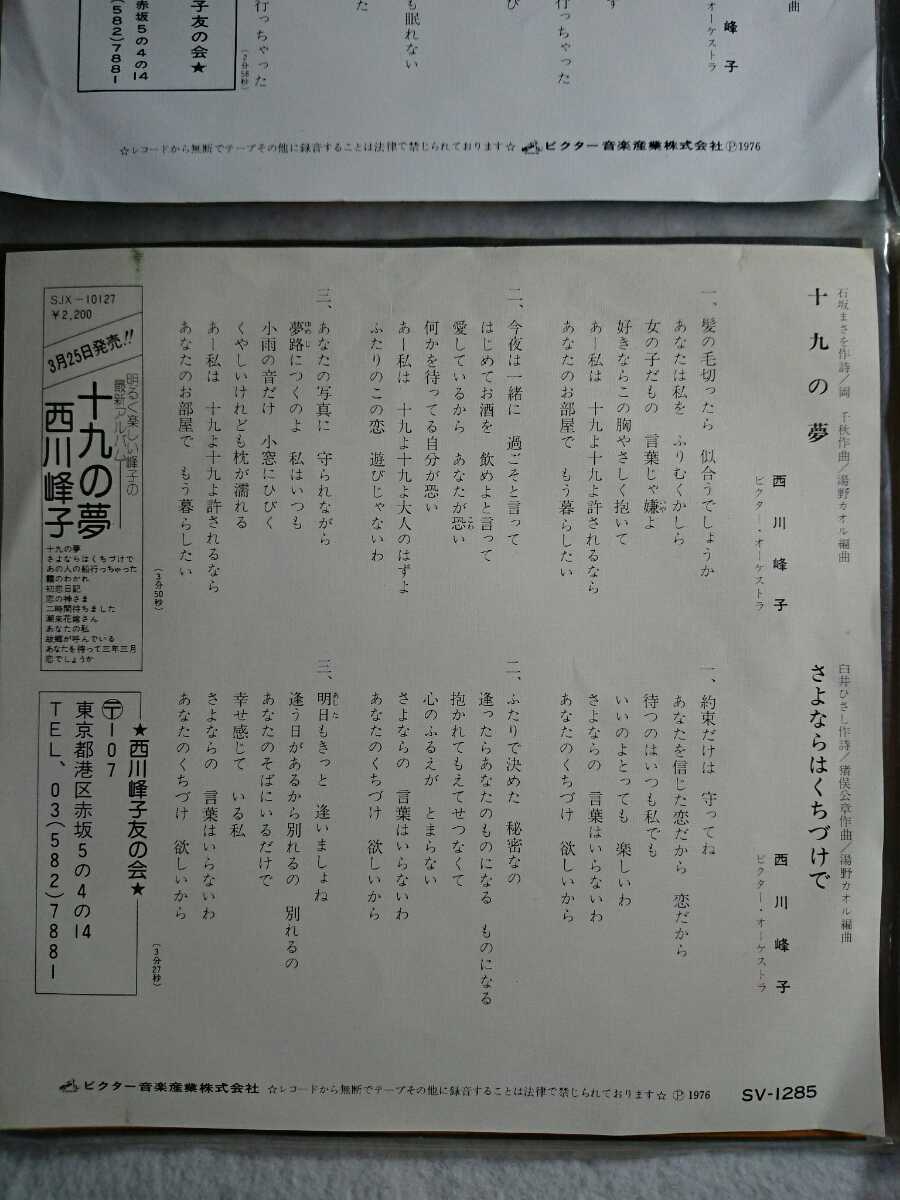 曲
峰
子
オーケストラ
す
行っちゃった
び
も眠れない
た
行っちゃった
（2分58秒）
子友の会★
赤坂5の4の14
(582)7881
☆レコードから無断でテープその他に録音することは法律で禁じられております☆ ビクター音楽産業株式会社Ⓟ1976
石坂まさを作詩／岡 千秋作曲／湯野カオル編曲
十九の夢
西川峰子
ビクター・オーケストラ
一、髪の毛切ったら 似合うでしょうか
あなたは私を ふりむくかしら
女の子だもの 言葉じゃ嫌よ
好きならこの胸やさしく抱いて
あー私は 十九よ十九よ許されるなら
あなたのお部屋で もう暮らしたい
二、今夜は一緒に 過ごそと言って
はじめてお酒を 飲めよと言って
愛しているから あなたが恐い
何かを待ってる自分が恐い
あー私は 十九よ十九よ大人のはずよ
ふたりのこの恋 遊びじゃないわ
三、あなたの写真に 守られながら
夢路につくのよ 私はいつも
小雨の音だけ 小窓にひびく
くやしいけれども枕が濡れる
あー私は 十九よ十九よ許されるなら
あなたのお部屋で もう暮らしたい
（3分50秒）
SJX-10127
¥2,200
3月25日発売!!
明るく楽しい峰子の
最新アルバム
十九の夢
西川峰子
十九の夢
さよならはくちづけで
あの人の船行っちゃった
霧のわかれ
初恋日記
恋の神さま
二時間待ちました
潮来花嫁さん
あなたの私
故郷が呼んでいる
あなたを待って三年三月
恋でしょうか
臼井ひさし作詩／猪俣公章作曲／湯野カオル編曲
さよならはくちづけで
西川峰子
ビクター・オーケストラ
一、約束だけは 守ってね
あなたを信じた恋だから 恋だから
待つのはいつも私でも
いいのよとっても 楽しいわ
さよならの 言葉はいらないわ
あなたのくちづけ 欲しいから
二、ふたりで決めた 秘密なの
逢ったらあなたのものになる ものになる
抱かれてもえてせつなくて
心のふるえが とまらない
さよならの 言葉はいらないわ
あなたのくちづけ 欲しいから
三、明日もきっと 逢いましょね
逢う日があるから別れるの 別れるの
あなたのそばにいるだけで
幸せ感じて いる私
さよならの 言葉はいらないわ
あなたのくちづけ 欲しいから
（3分27秒）
★西川峰子友の会★
〒107
東京都港区赤坂5の4の14
TEL、03(582)7881
ビクター音楽産業株式会社 ☆レコードから無断でテープその他に録音することは法律で禁じられております☆ Ⓟ1976 SV-1285